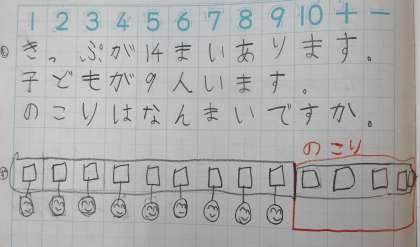 1 2 3 4 5 6 7 8 9 10 + −
きっぷが14まいあります。
子どもが9人います。
のこりはなんまいですか。
のこり